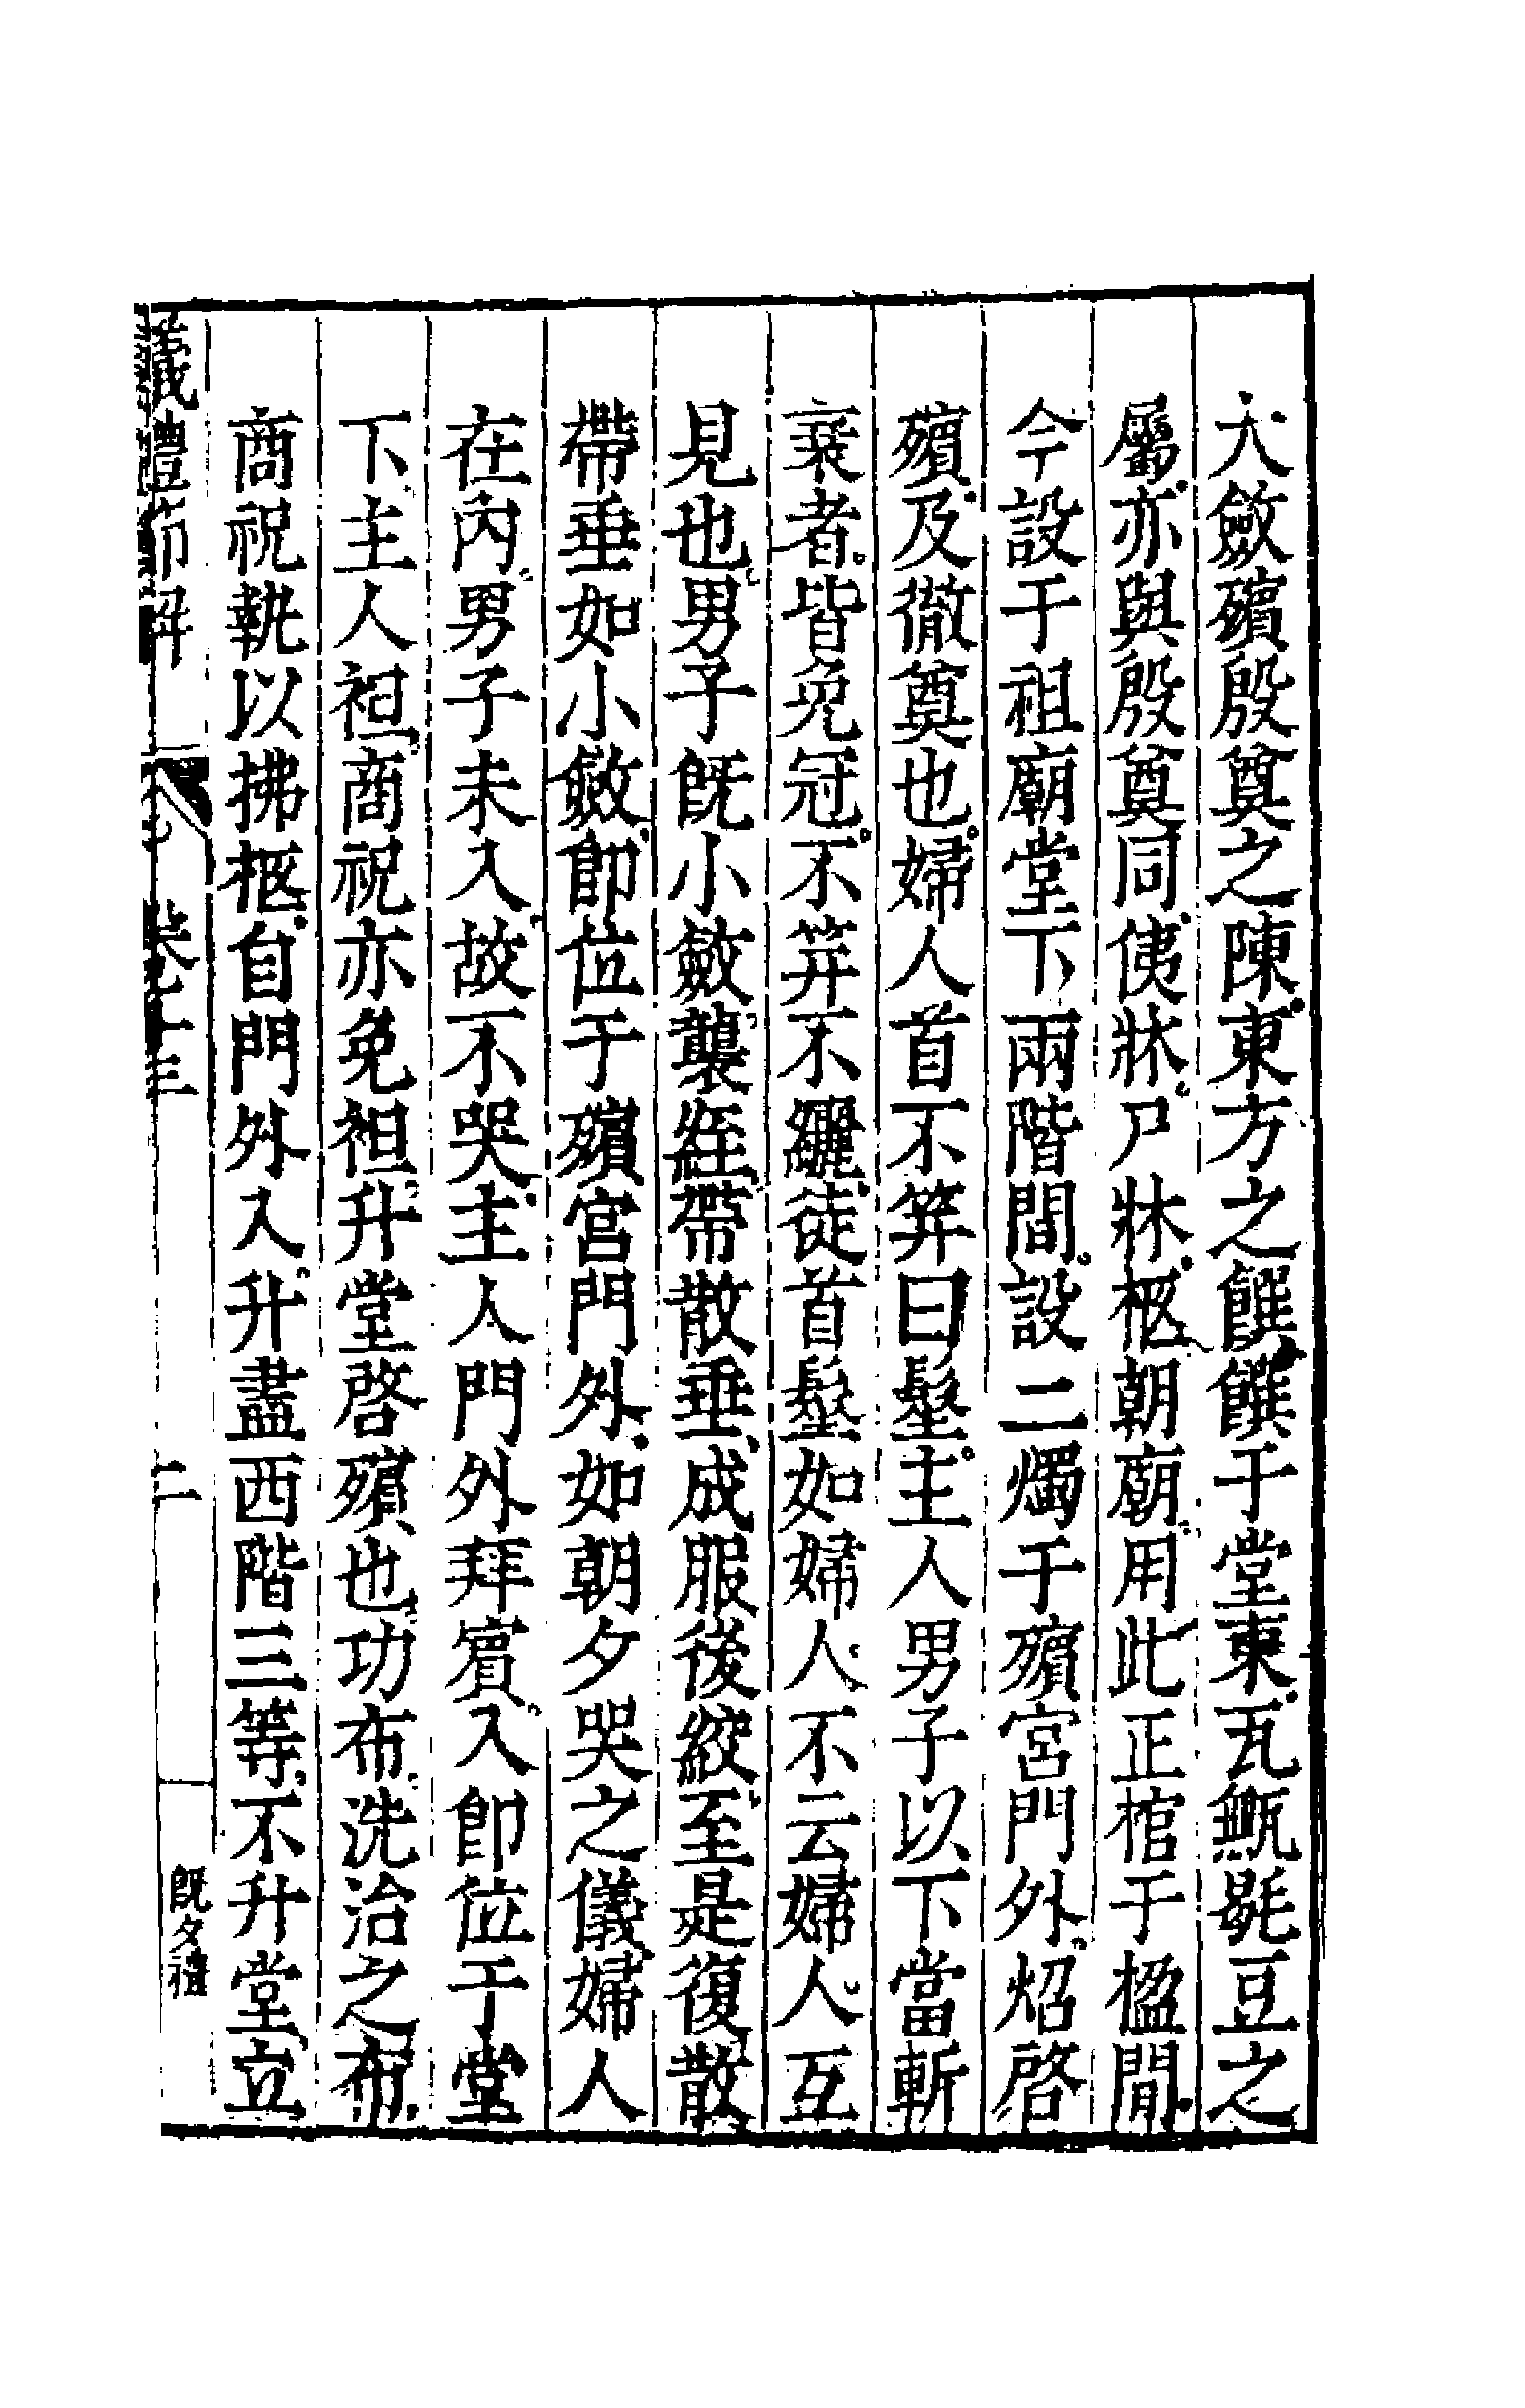 大斂殯殷奠之陳東方之饌饌于堂東瓦甒毼豆之
屬亦與殷奠同侇牀尸牀柩朝廟用此正棺于楹間
今設于祖廟堂下兩階間設二燭于殯宮門外炤啓
殯及徹奠也婦人首不笄曰髽主人男子以下當斬
衰者皆免冠不笄不纚徒首髽如婦人不云婦人互
見也男子旣小斂襲絰帶散垂成服後絞至是復散
帶垂如小斂卽位于殯宮門外如朝夕哭之儀婦人
在內男子未入故不哭主人門外拜賓入卽位于堂
下主人袒商祝亦免袒升堂啓殯也功布洗治之布
商祝執以拂柩自門外入升盡西階三等不升堂立
儀禮節解
卷十三
二
旣夕禮